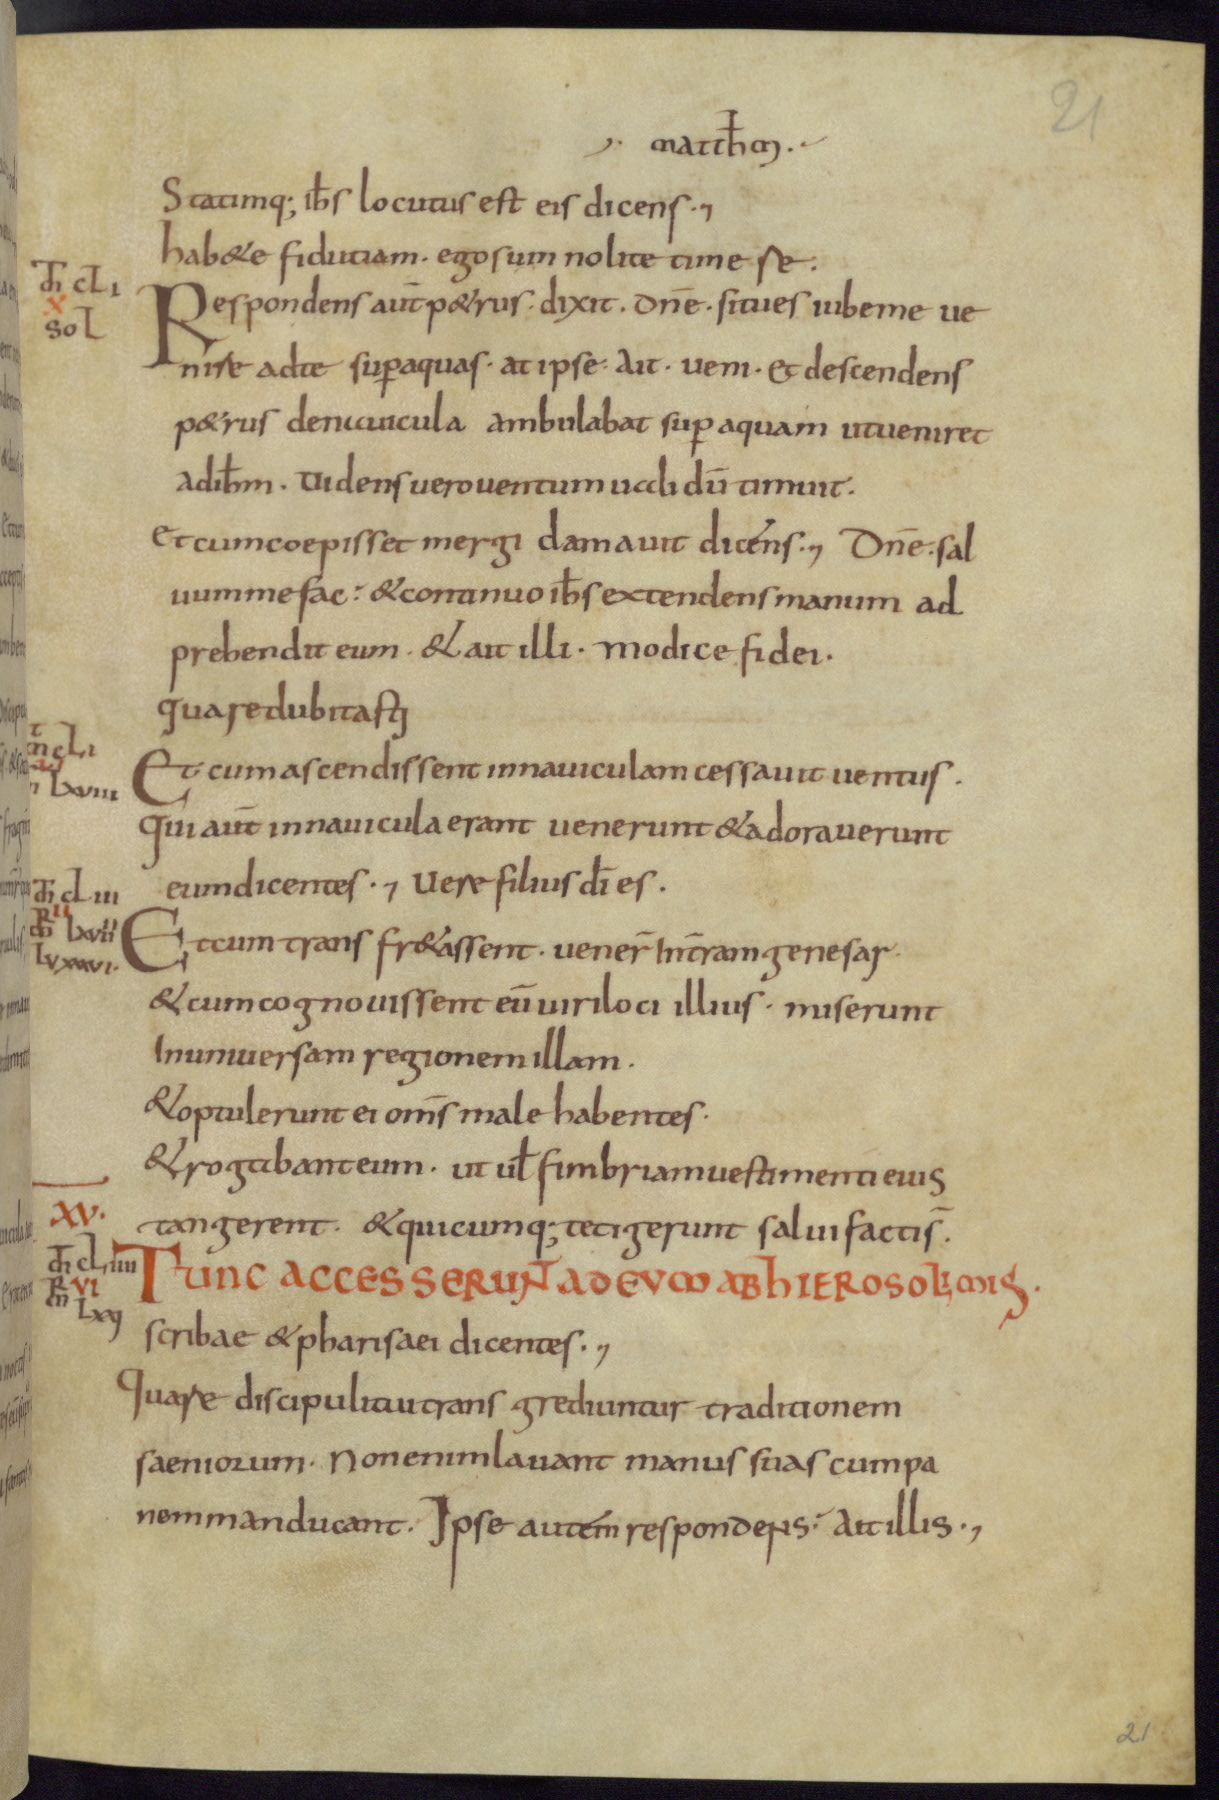 21
mattħm.
Statimq; iħs locutus est eis dicens.
hab&e fidutiam. ego sum nolite timere.
m̄ cLI
X
Respondens aut̄ p&rus. dixit. dn̄e. situes iubeme ue
soL
nire adte sup̄aquas. at ipse. Ait. veni. Et descendens
p&rus denauicula ambulabat sup̄ aquam utueniret
adiħm. Videns uero uentum ualidū timuit.
Et cum coepisset mergi clamauit dicens. Dn̄e. sal
uummefac: & continuo iħs extendens manum ad
prehendit eum. & ait illi. modice fidei.
quare dubitasti
cLI
LXVIII
Et cum ascendissent innauiculam cessauit uentus.
Qui aut̄ innauicula erant uenerunt & adorauerunt
m̄ cLIII
eum dicentes. Vere filius dī es.
II
LXVII
Et cum trans fr&assent. uener̄ Int̄ram genesar.
LVXXXVI.
& cum cognouissent eū uiri loci illius. miserunt
Inuniuersam regionem illam.
& optulerunt ei om̄s male habentes.
& rogabant eum. ut uł fimbriam uestimenti eius
XV.
tangerent. & quicumq; tetigerunt salui factis̄.
m̄ cLIIII
VI
Tunc accesserunt ad eum ab hierosolimis.
scribae & pharisaei dicentes.
Quare discipuli tui trans grediuntur traditionem
saeniorum. Non enim lauant manus suas cum pa
nem manducant. Ipse autem respondens: Ait illis.
21